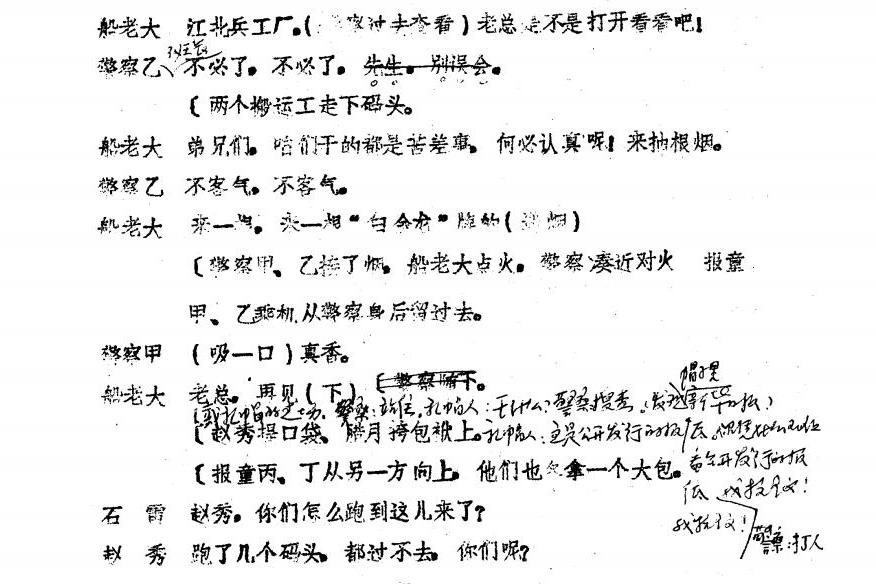 船老大 江北兵工厂。(警察过去查看)老总是不是打开看看吧!
警察乙 不必了。不必了。先生。别误会。
(两个搬运工走下码头。
船老大 弟兄们。咱们干的都是苦差事。何必认真呢!来抽根烟。
警察乙 不客气。不客气。
船老大 来一根。来一根“白金龙”牌的(递烟)
(警察甲、乙接了烟。船老大点火。警察凑近对火 报童
甲、乙乘机从警察身后留过去。
警察甲 (吸一口)真香。
帽子里
船老大 老总。再见(下)(警察 下。
警察:站住,孔帕人:干什么?警察搜查,
(赵秀提口袋。腊月挎包袱上。
(报童丙、丁从另一方向上。他们也 拿一个大包。
公开发行的报
纸 我抗议!
石雷 赵秀。你们怎么跑到这儿来了?
我抗议!
警察:打人
赵秀 跑了几个码头。都过不去。你们呢?